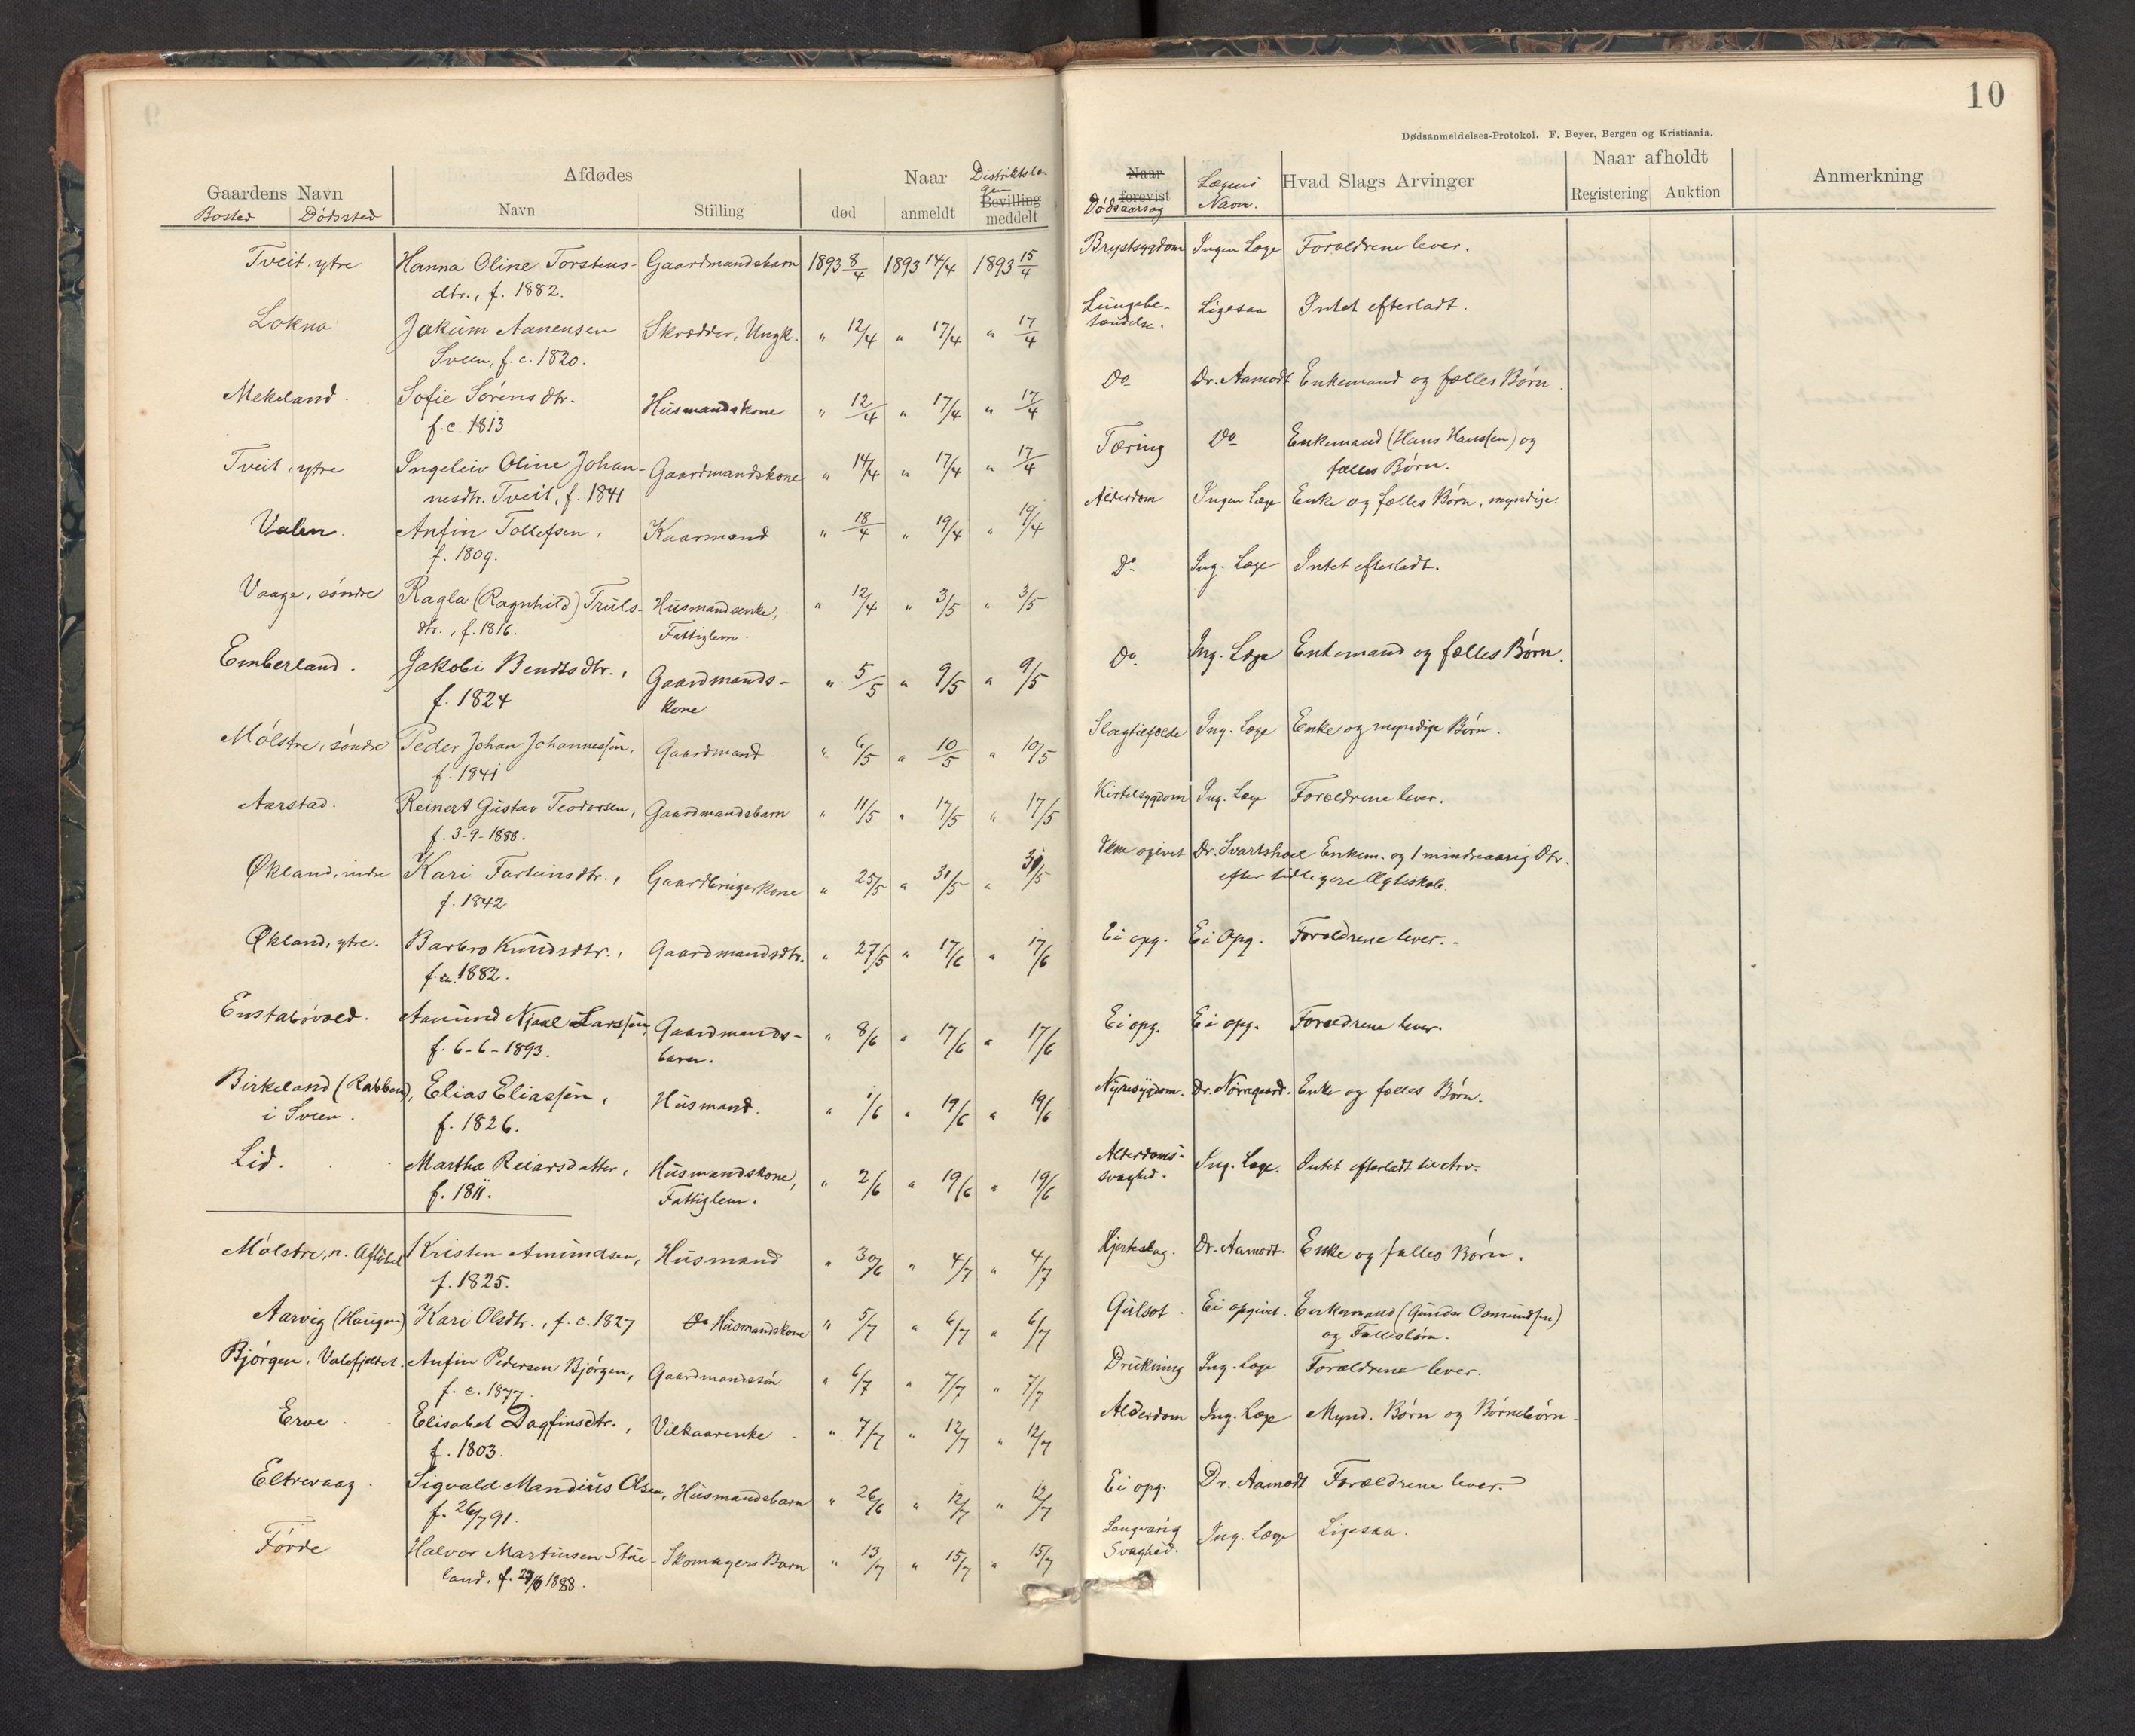 10
Dødsanmeldelses-Protokol. F. Beyer, Bergen og Kristiania.
Gaardens Navn
Bosted Dødssted
Afdødes
Navn Stilling
Naar
død anmeldt
Distriktslægen
Bevilling
meddelt
Naar
forevist
Dødsaarsag
Lægens
Navn.
Hvad Slags Arvinger
Naar afholdt
Registering Auktion
Anmerkning
Tveit, ytre Hanna Oline Torstens- Gaardmandsbarn 1893 8/4 1893 14/4 1893 15/4 Brystsygdom Ingen Læge Forældrene lever.
dtr., f. 1882.
Lokna Jakum Aanensen Skrædder, Ungk. " 12/4 " 17/4 " 17/4 Lungebe- Ligesaa Intet efterladt.
Sveen, f. c. 1820. tændelse.
Mekeland. Sofie Sørensdtr. Husmandskone " 12/4 " 17/4 " 17/4 Do Dr. Aamodt Enkemand og fælles Børn.
f. c. 1813
Tveit, ytre Ingeleiv Oline Johan- Gaardmandskone " 14/4 " 17/4 " 17/4 Tæring Do Enkemand (Hans Hanssen) og
nesdtr. Tveit, f. 1841 fælles Børn.
Valen. Anfin Tollefsen, Kaarmand " 18/4 " 19/4 " 19/4 Alderdom Ingen Læge Enke og fælles Børn, myndige.
f. 1809.
Vaage, søndre Ragla (Ragnhild) Truls- Husmandsenke, " 12/4 " 3/5 " 3/5 Do Ing. Læge Intet efterladt.
dtr., f. 1816. Fattiglem.
Emberland. Jakobi Bendtsdtr., Gaardmands- " 5/5 " 9/5 " 9/5 Do Ing. Læge Enkemand og fælles Børn.
f. 1824 kone
Mølstre, søndre Peder Johan Johannessen, Gaardmand " 6/5 " 10/5 " 10/5 Slagtilfælde Ing. Læge Enke og myndige Børn.
f. 1841
Aarstad. Reinert Gustav Teodorsen, Gaardmandsbarn " 11/5 " 17/5 " 17/5 Kirtelsygdom Ing. Læge Forældrene lever.
f. 3-9-1888.
Økland, indre Kari Farteinsdtr., Gaardbrugerkone " 25/5 " 31/5 " 31/5 Ikke ogivet Dr. Svartshoel Enkem. og 1 mindreaarig Dtr.
f. 1842 efter tidligere Ægteskab.
Økland, ytre. Barbro Knudsdtr., Gaardmandsdtr. " 27/5 " 17/6 " 17/6 Ei opg. Ei Opg. Forældrene lever.
f. ca. 1882.
Enstabøvold. Aamund Njaal Larssen, Gaardmands- " 8/6 " 17/6 " 17/6 Ei opg. Ei opg. Forældrene lever.
f. 6-6-1893. barn.
Birkeland (Rabben), Elias Eliassen, Husmand. " 1/6 " 19/6 " 19/6 Nyresygdom. Dr. Nørregaard. Enke og fælles Børn.
i Sveen. f. 1826.
Lid. Martha Reiarsdatter, Husmandskone, " 2/6 " 19/6 " 19/6 Alderdoms- Ing. Læge. Intet efterladt til Arv.
f. 1811. Fattiglem. svaghed.
Mølstre, n. Afløbet Kristen Amundsen, Husmand " 30/6 " 4/7 " 4/7 Hjerteslag. Dr. Aamodt. Enke og fælles Børn.
f. 1825.
Aarvig (Haugen) Kari Olsdtr., f. c. 1827 Do Husmandskone " 5/7 " 6/7 " 6/7 Gulsot. Ei opgivet. Enkemand (Gunder Osmundsen)
og Fællesbørn.
Bjørgen, Valefjældet. Anfin Pedersen Bjørgen, Gaardmandssøn " 6/7 " 7/7 " 7/7 Drukning Ing. Læge Forældrene lever.
f. c. 1877.
Erve Elisabet Dagfinsdtr., Vilkaarenke " 7/7 " 12/7 " 12/7 Alderdom Ing. Læge Mynd. Børn og Børnebørn.
f. 1803.
Eltrevaag. Sigvald Mandius Olsen, Husmandsbarn " 26/6 " 12/7 " 12/7 Ei opg. Dr. Aamodt Forældrene lever.
f. 26/7 91.
Førde Halvor Martinsen Stue- Skomagers Barn " 13/7 " 15/7 " 15/7 Langvarig Ing. Læge Ligesaa.
land, f. 1888. Svaghed.